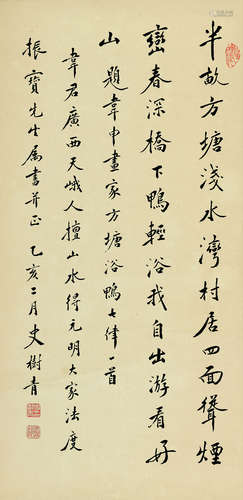 半畝方塘淺水灣村居四面聳煙
巒春深橋下鴨輕浴我自出游看好
山題韋申畫家方塘浴鴨七律一首
韋君廣西天峨人擅山水得元明大家法度
振寶先生屬書并正乙亥二月史樹青